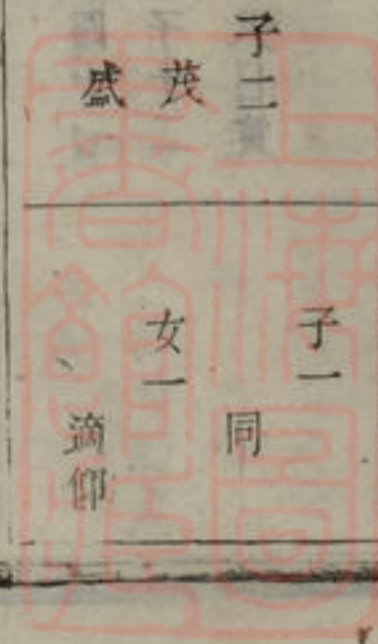 子二
茂
盛
子一
同
女一
適仰